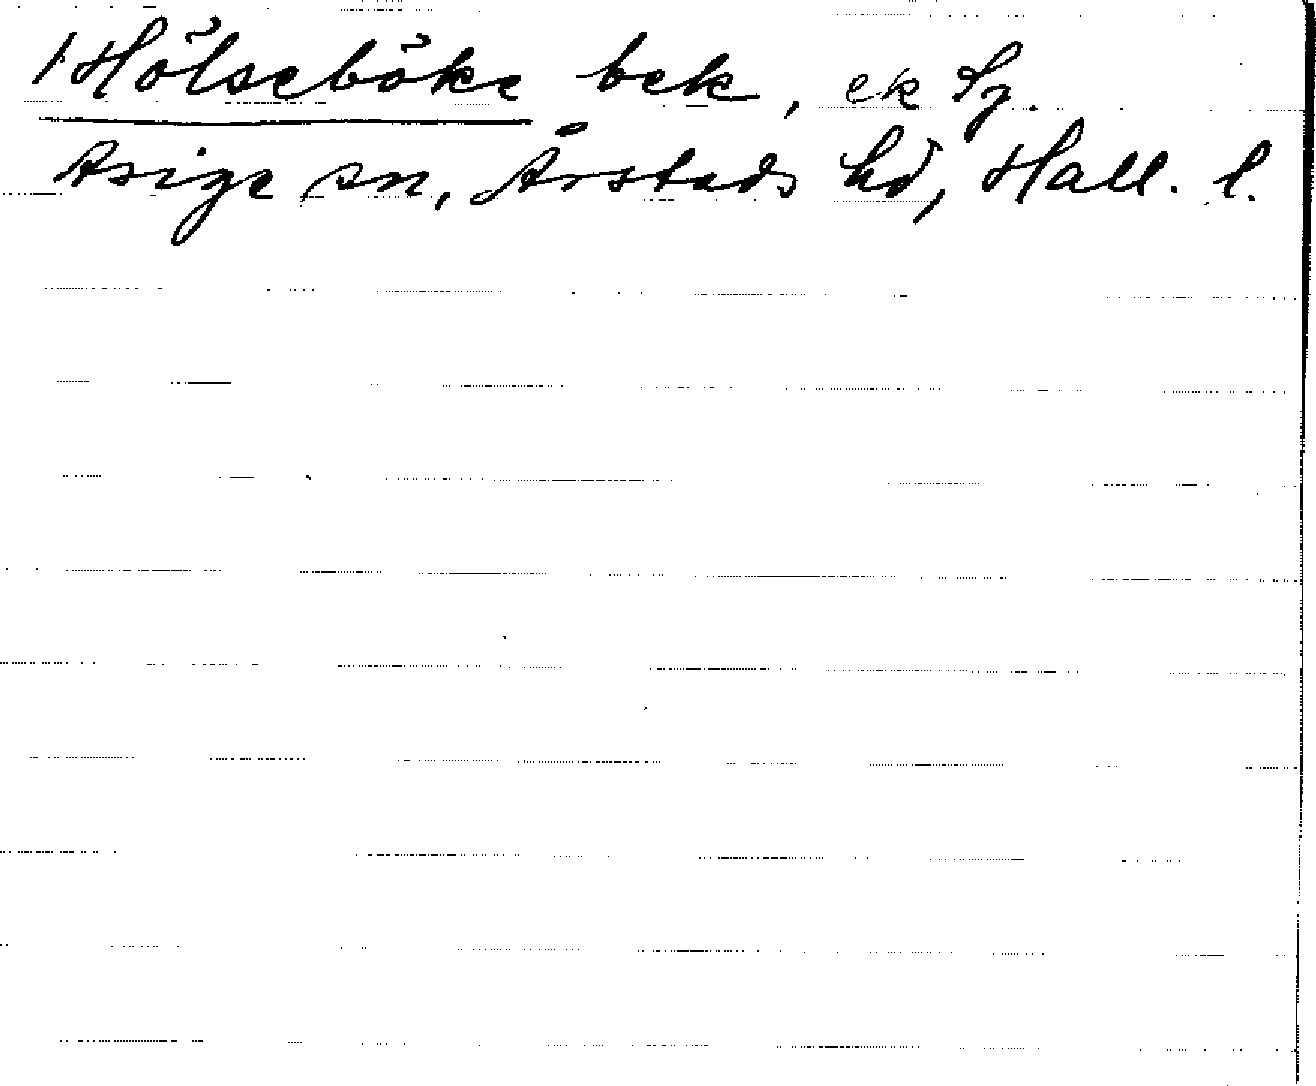 Hölseböke bek, ek
Asige sn, Årstads hd, Hall. l.